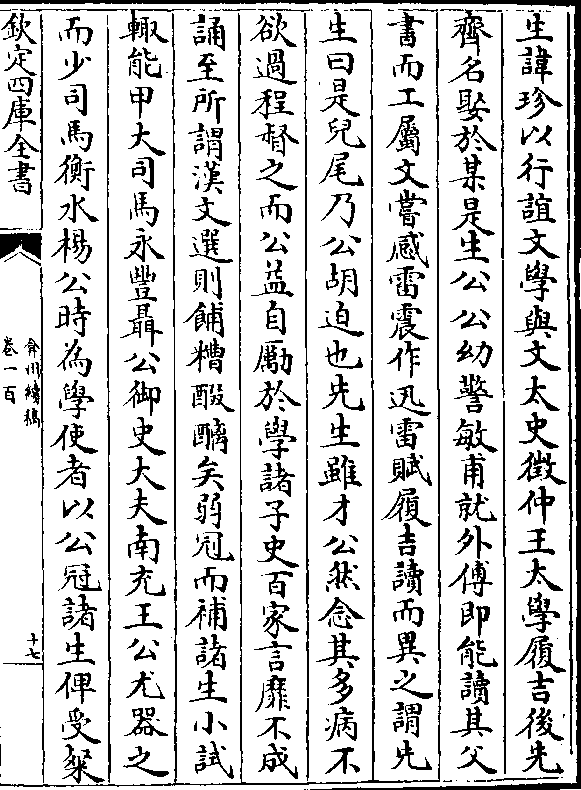 生諱珍以行誼文學與文太史徵仲王太學履吉後先
齊名娶於某是生公公幼警敏甫就外傅即能讀其父
書而工屬文嘗感雷震作迅雷賦履吉讀而異之謂先
生曰是兒尾乃公胡迫也先生雖才公然念其多病不
欲過程督之而公益自勵於學諸子史百家言靡不成
誦至所謂漢文選則餔糟酘醨矣弱冠而補諸生小試
輙能甲大司馬永豐聶公御史大夫南充王公尤器之
而少司馬衡水楊公時為學使者以公冠諸生俾受粲
欽定四庫全書
弇州續稿
卷一百
十七